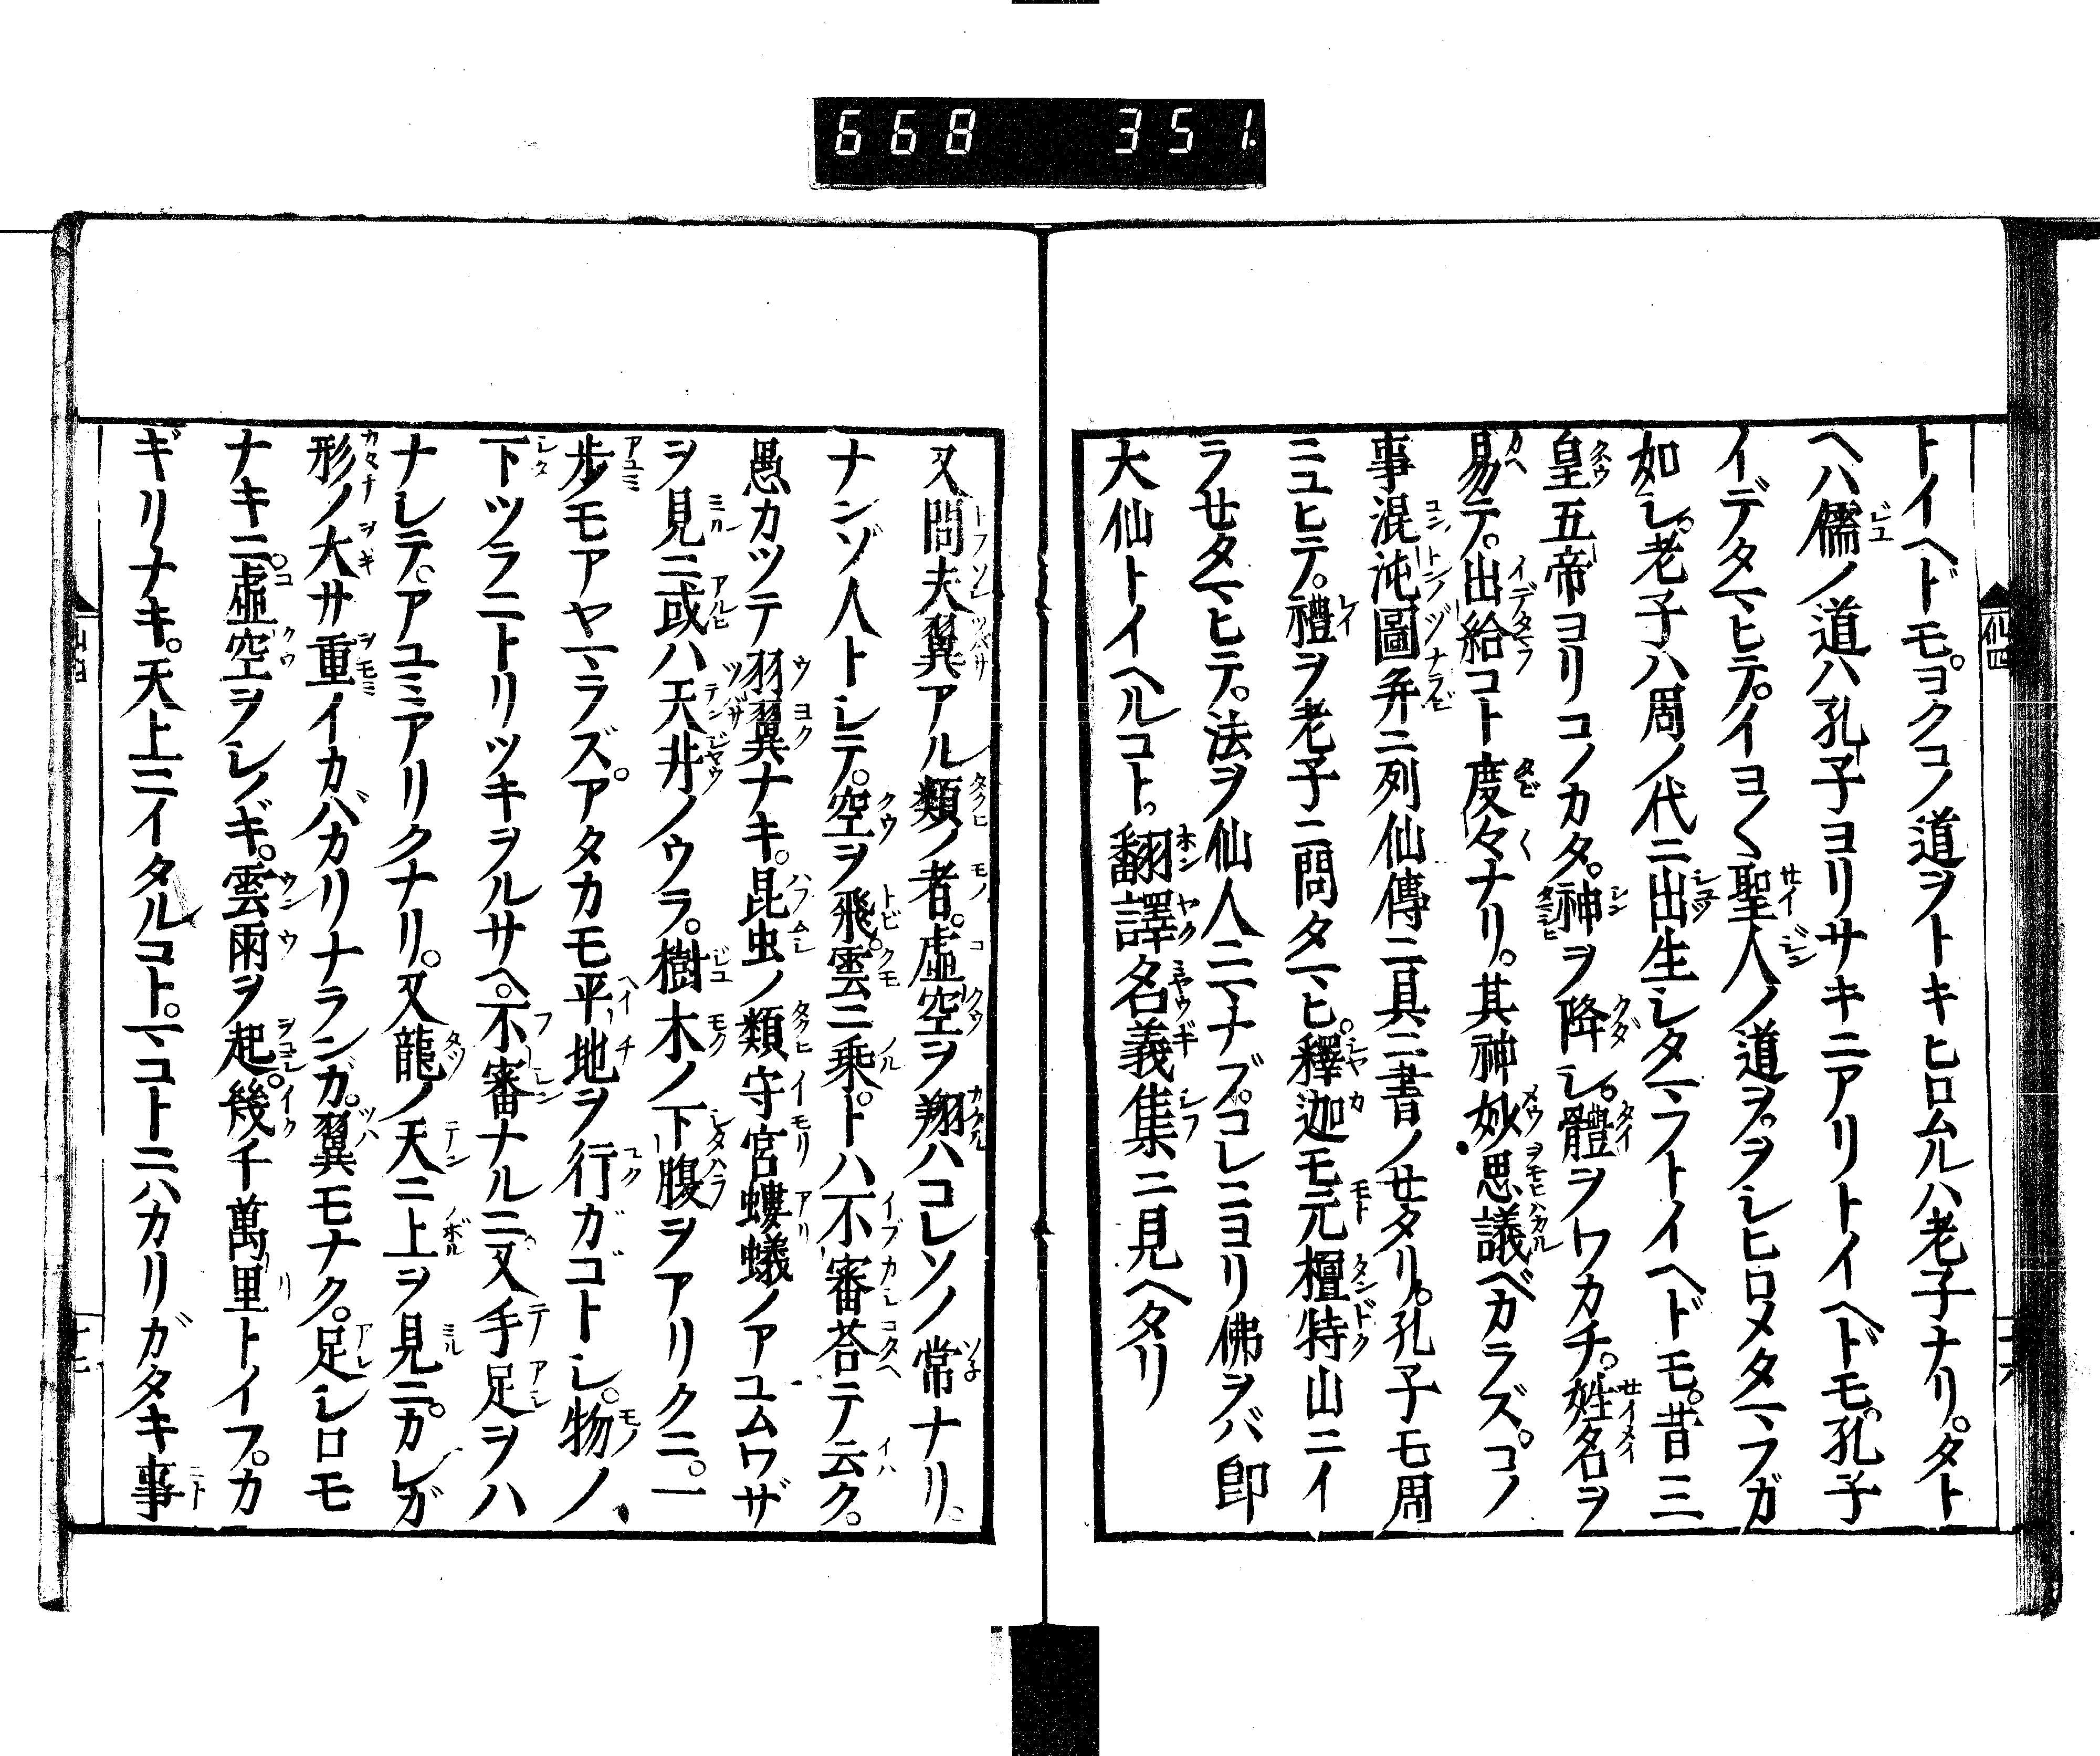 668 351.
トイヘドモ。ヨクコノ道ヲトキヒロムルハ老子ナリ。タト
ヘハ儒ノ道ハ孔子ヨリサキニアリトイヘドモ。孔子
イデタマヒテ。イヨ〱聖人ノ道ヲ。ヲシヒロメタマフガ
如シ。老子ハ周ノ代ニ出生シタマフトイヘドモ。昔三
皇五帝ヨリコノカタ。神ヲ降シ。體ヲワカチ。姓名ヲ
易テ。出給コト度々ナリ。其神妙思議ベカラズ。コノ
事混沌圖并ニ列仙傳ニ具ニ書ノセタリ。孔子モ周
ニユヒテ。禮ヲ老子ニ問タマヒ。釋迦モ元檀特山ニイ
ラせタマヒテ。法ヲ仙人ニマナブ。コレニヨリ佛ヲバ即
大仙トイヘルコト。翻譯名義集ニ見ヘタリ
又問夫翼アル類ノ者。虛空ヲ翔ハコレソノ常ナリ。
ナンゾ人トシテ。空ヲ飛。雲ニ乘。トハ不審荅テ云ク。
愚カツテ羽翼ナキ。昆虫ノ類守宮螻蟻ノアユムワザ
ヲ見ニ或ハ天井ノウラ。樹木ノ下腹ヲアリクニ。一
歩モアヤマラズ。アタカモ平地ヲ行ガゴトシ。物ノ
下ツラニトリツキヲルサヘ。不審ナルニ。又手足ヲハ
ナレテ。アユミアリクナリ。又龍ノ天ニ上ヲ見ニ。カレガ
形ノ大サ重イカバカリナランガ。翼モナク。足シロモ
ナキニ。虛空ヲシノギ。雲雨ヲ起。幾千萬里トイフ。カ
ギリナキ。天上ニイタルコト。マコトニハカリガタキ事